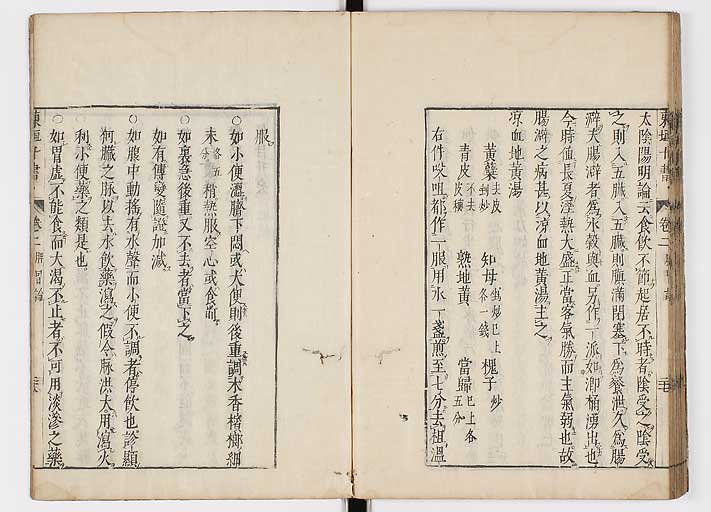 太陰陽明論云食飲不節起居不時者陰受之陰受
之則入五臟入五臟則䐜滿閉塞下為飧泄久為腸
澼夫腸澼者為水穀與血另作一派如㴇桶湧出也
今時值長夏溼熱大盛正當客氣勝而主氣弱也故
腸澼之病甚以凉血地黃湯主之
凉血地黃湯
黃蘗去皮剉炒 知母剉炒已上各一錢 槐子炒
青皮不去皮穰 熟地黃 當歸已上各五分
右件㕮咀都作一服用水一盞煎至七分去柤溫
服
○如小便澀臍下悶或大便則後重調木香檳榔細
末各五分稍熱服空心或食前
○如裏急後重又不去者當下之
如有傳變隨證加減
○如腹中動搖有水聲而小便不調者停飲也診顯
何臟之脈以去水飲藥瀉之假令脈洪大用瀉火
利小便藥之類是也
○如胃虛不能食而大渴不止者不可用淡滲之藥
卷二